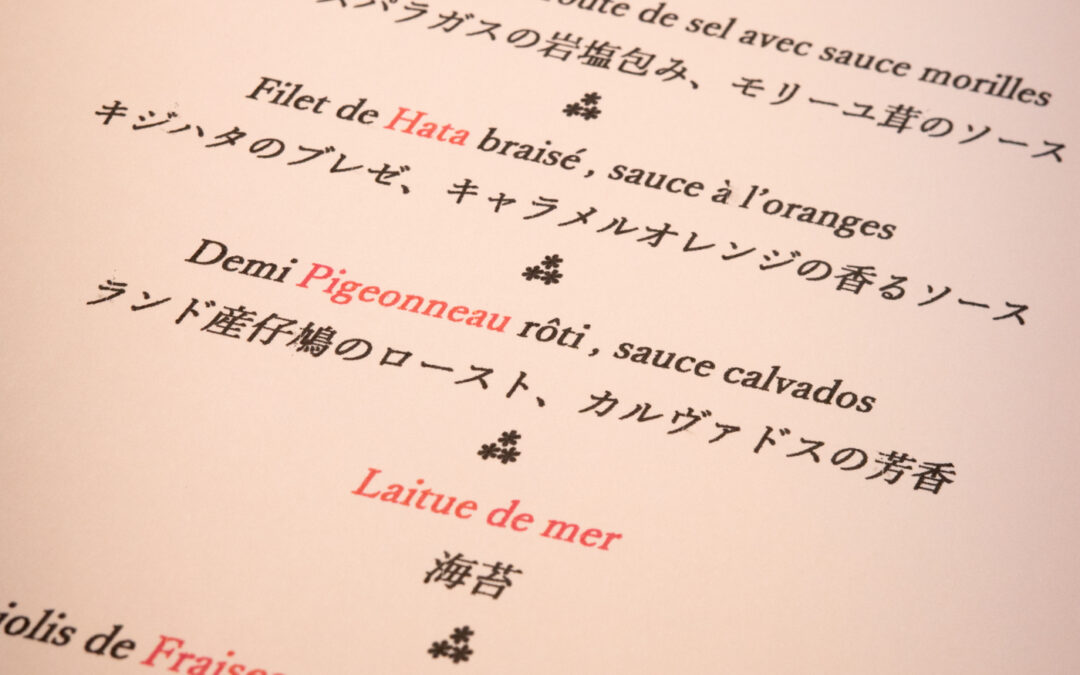 de sel avec sauce morilles
スパラガスの岩塩包み、モリーユ茸のソース
Filet de Hata braisé , sauce à l’oranges
キジハタのブレゼ、キャラメルオレンジの香るソース
Demi Pigeonneau rôti , sauce calvados
ランド産仔鳩のロースト、カルヴァドスの芳香
Laitue de mer
海苔
de